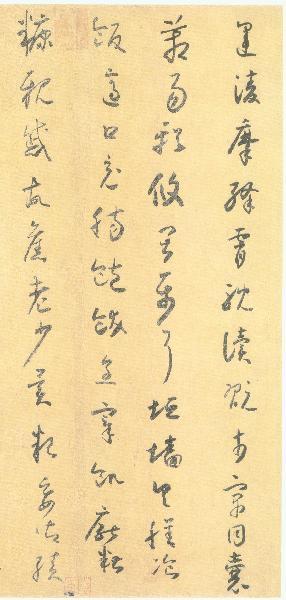 運凌摩絳霄耽讀翫市寓目囊
箱易輶攸畏屬耳垣墻具膳飡
飯適口充腸飽飫烹宰飢厭糟
糠親戚故舊老少異粮妾御績